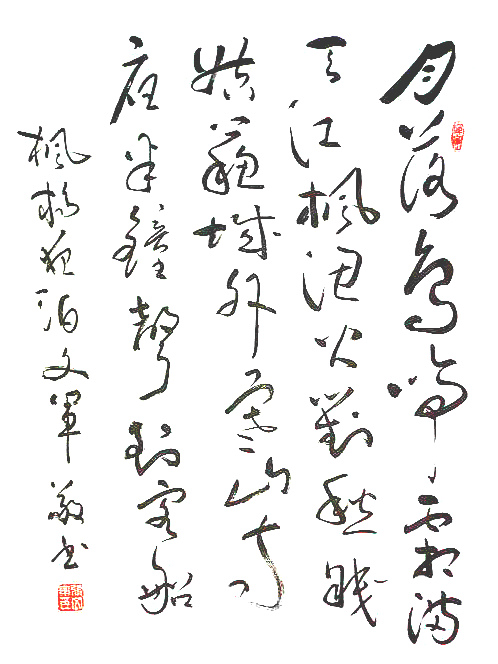 月落烏啼霜滿
天江枫渔火對愁眠
姑蘇城外寒山寺
夜半鐘聲到客船
枫桥夜泊文軍敬书